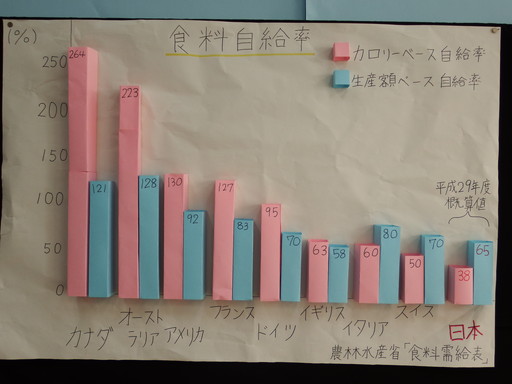 (%)
食料自給率
カロリーベース自給率
生産額ベース自給率
250
200
150
100
50
0
264
121
223
128
130
92
127
83
95
70
63
58
60
80
50
70
38
65
平成29年度
概算値
カナダ
オースト
ラリア
アメリカ
フランス
ドイツ
イギリス
イタリア
スイス
日本
農林水産省「食料需給表」